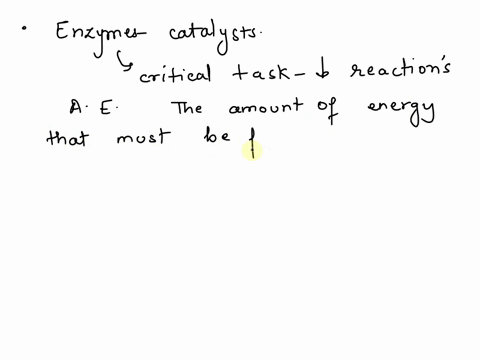 • Enzymes catalysts.
↳ critical task - ↓ reaction's
A. E. The amount of energy
that must be